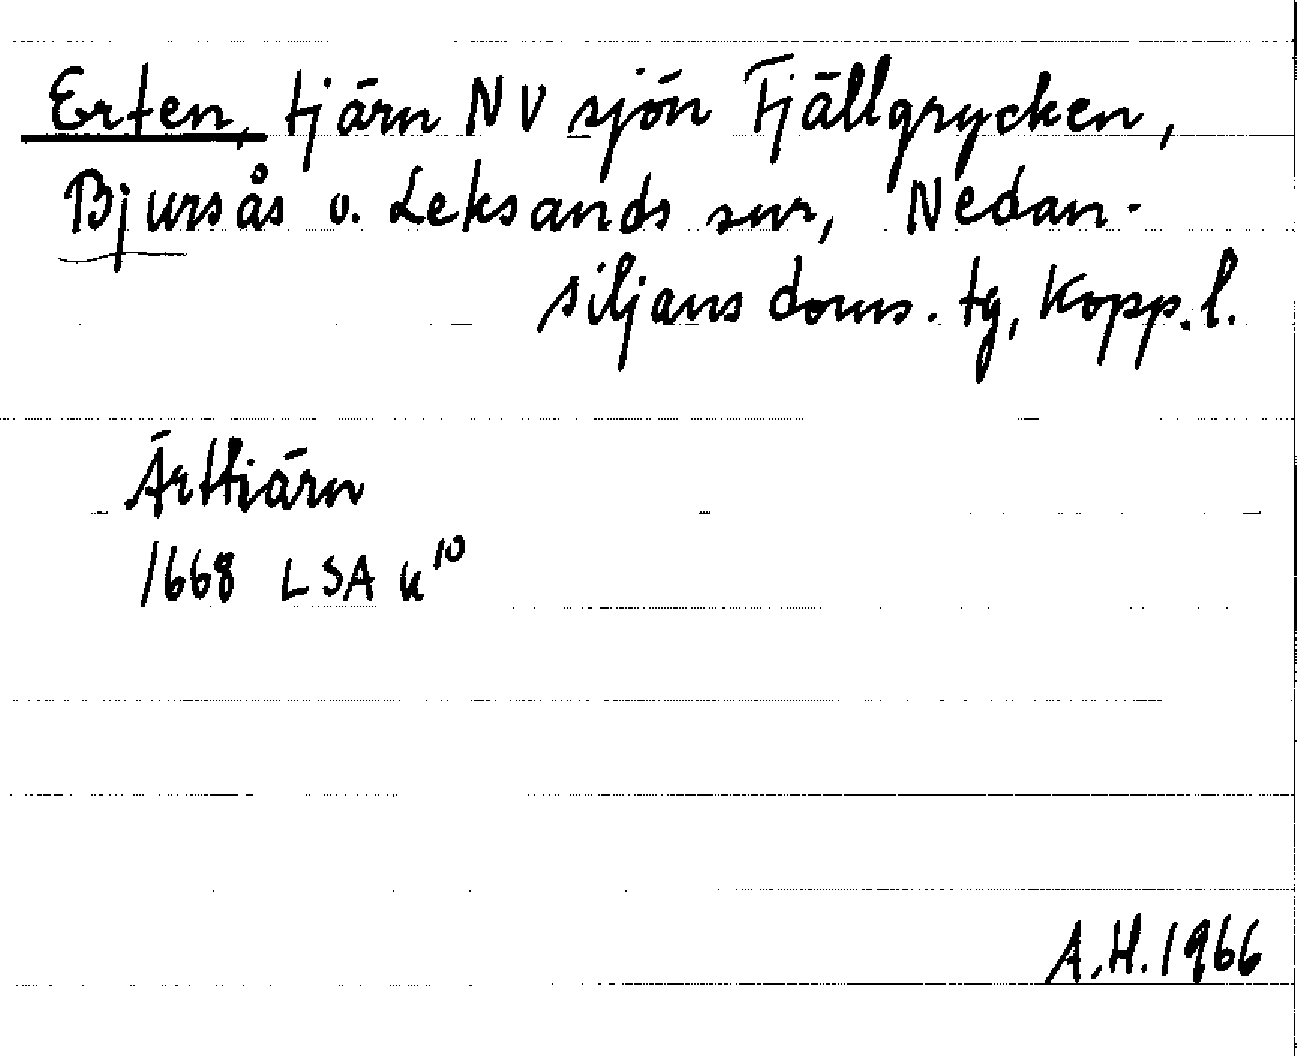 Erten, tjärn NV sjön Fjällgrycken,
Bjursås o. Leksands snr, Nedan-
siljans doms. tg, Kopp. l.
Ärttiärn
1668 LSA u¹⁰
A.H. 1966